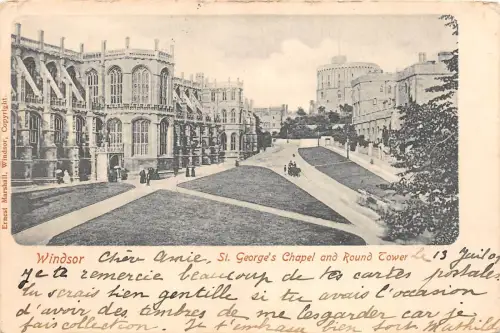 Ernest Marshall, Windsor, Copyright.
Windsor St. George's Chapel and Round Tower
Chère Amie, le 13 Juil 0
Je te remercie beaucoup de tes cartes postales
tu serais bien gentille si tu avais l'occasion
d'avoir des timbres de me les garder car je
fais collection. Je t'embrasse bien fort